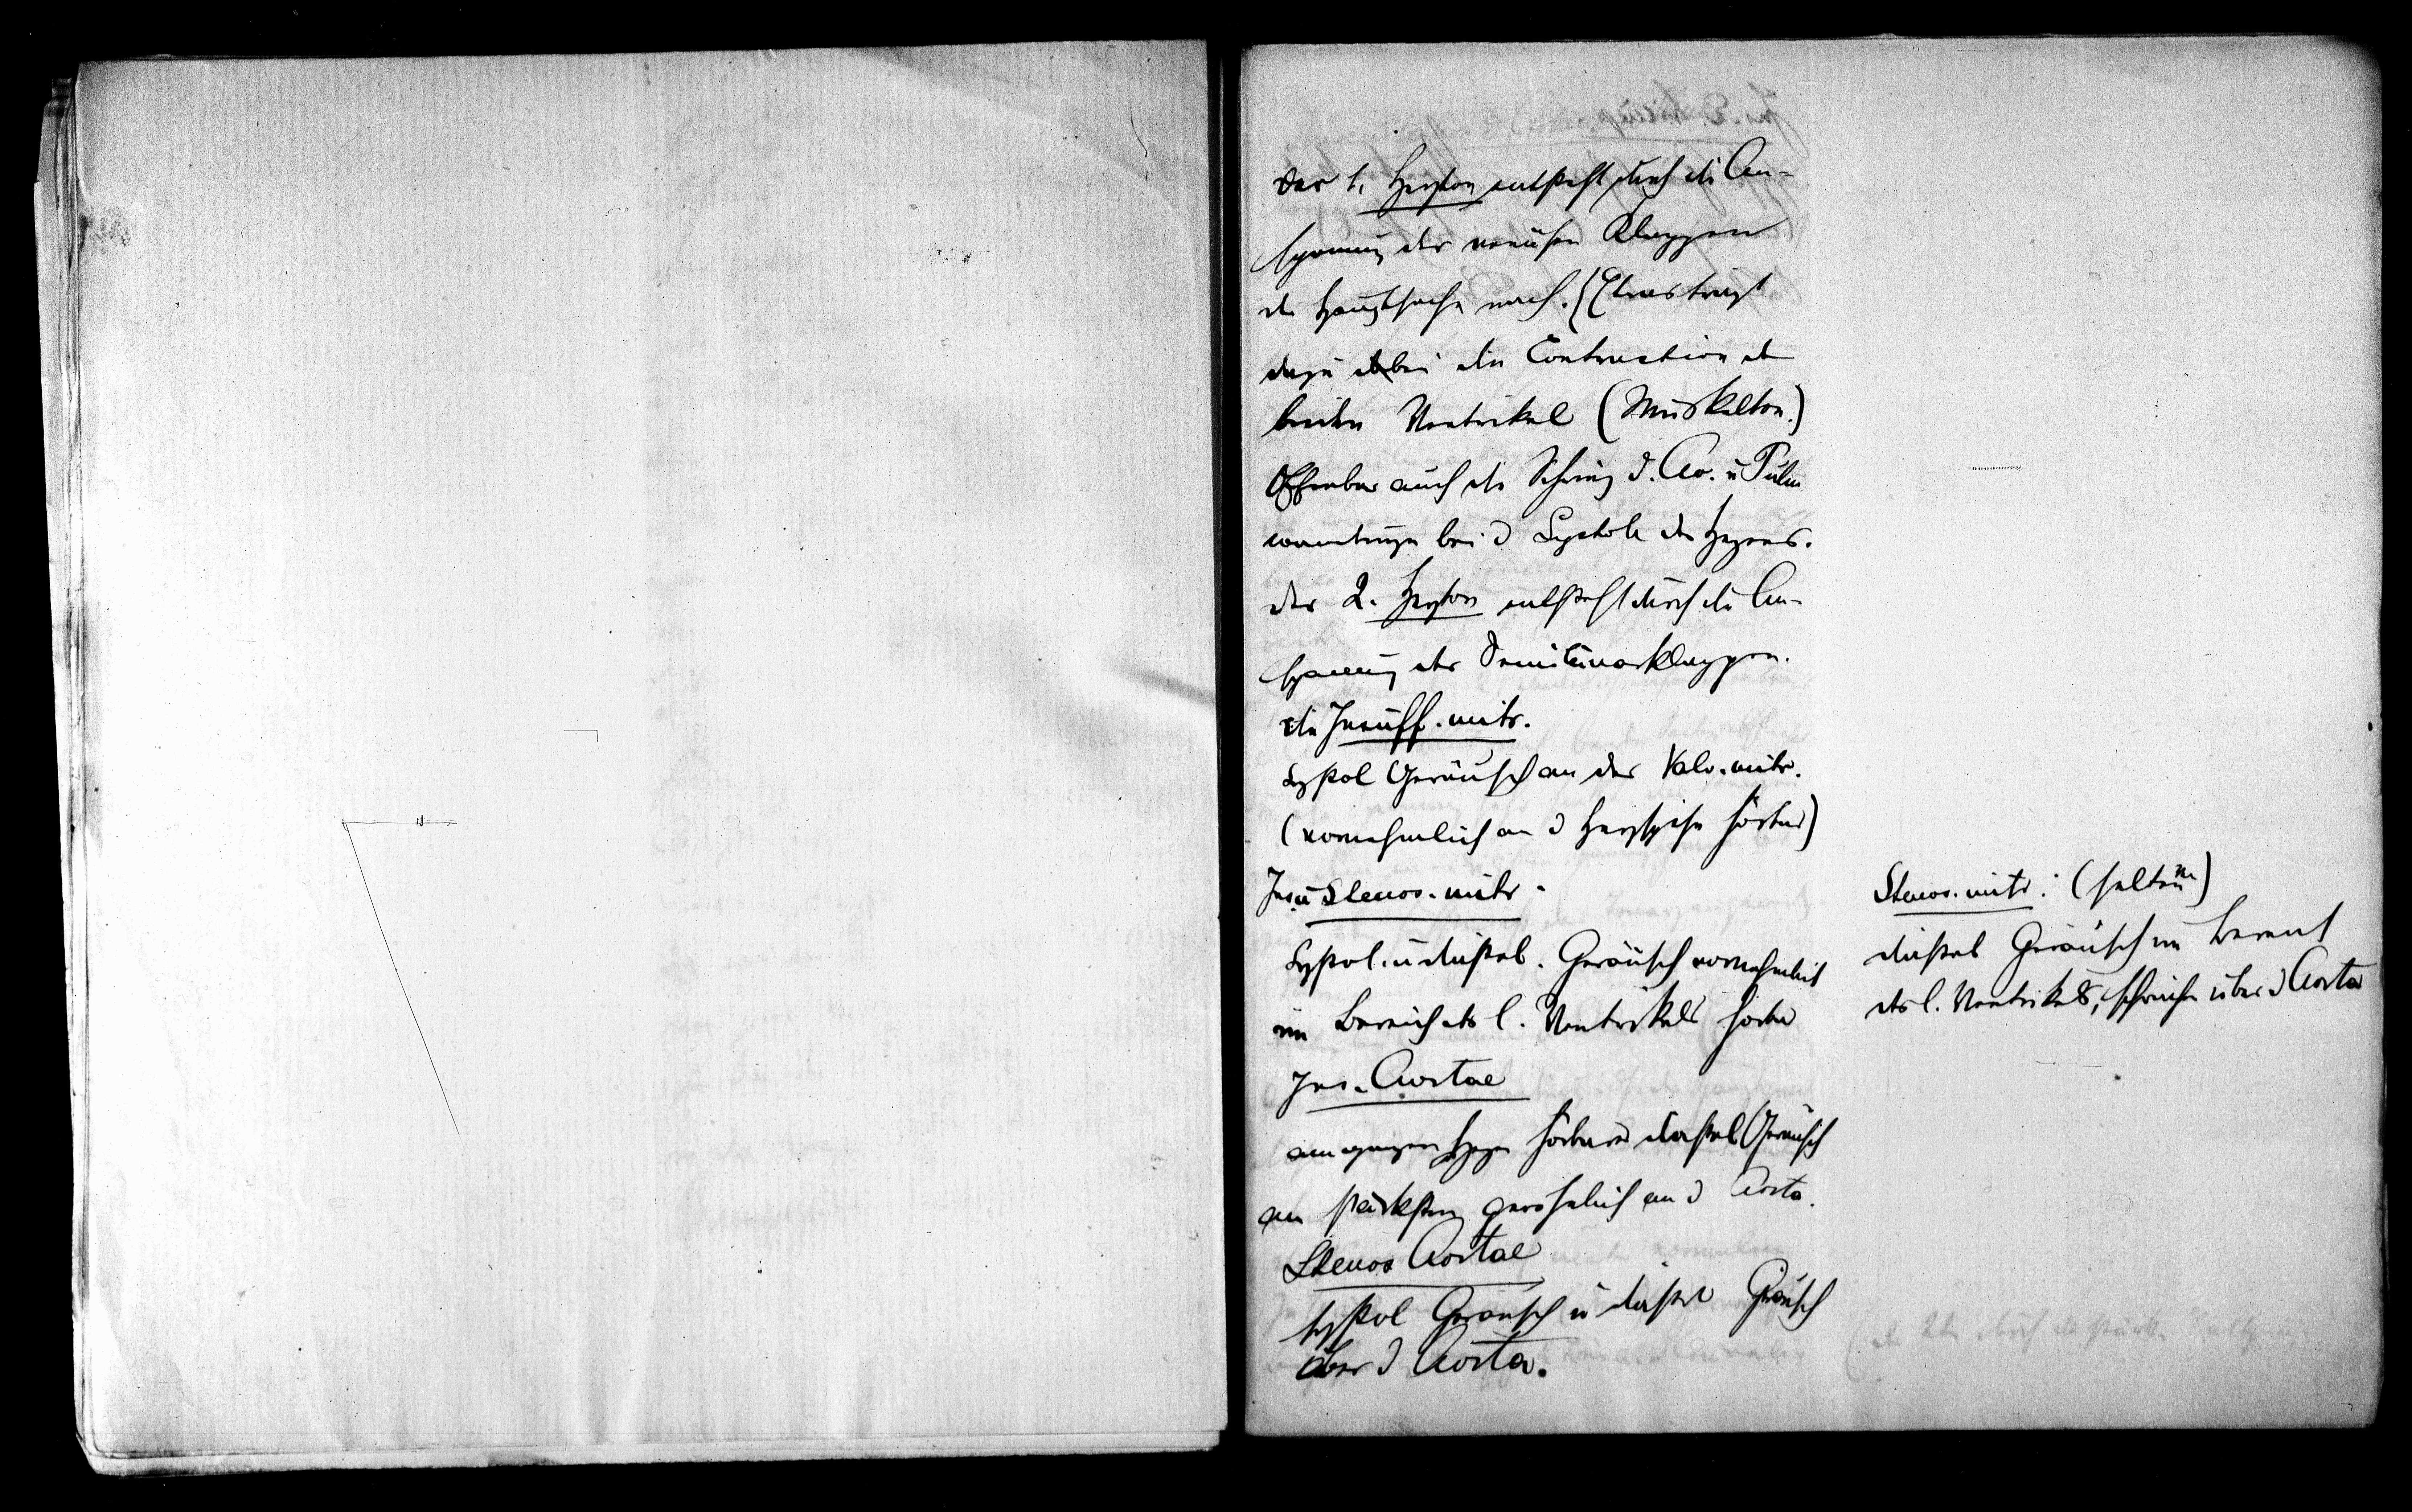 Der 1. Herzton entsteht durch die An-
spannung der venösen Klappen
der Hauptsache nach. (Etwas trägt
dazu bei die Contraction d
beiden Ventrikel (Muskelton.)
Offenbar auch die Schwing d. Ao. u Pulm
wandungen bei d Systole des Herzens.
Der 2. Herzton entsteht durch die An-
spannung der Semilunarklappen.
Die Insuff. mitr.
Systol Geräusch an der Valv. mitr.
(vornehmlich an d Herzspitze hörbar)
Ins u Stenos. mitr.
Systol. u diastol. Geräusch vornehmlich
im Bereich des l. Ventrikels hörbar
Ins. Aortae
am ganzen Herzen hörbares diastol Geräusch
am stärksten gewöhnlich an d Aorta.
Stenos Aortae
systol Geräusch u diastol Geräusch
über d Aorta.
Stenos. mitr: (selten)
diastol Geräusch im Bereich
des l. Ventrikels, schwächer über d Aorta